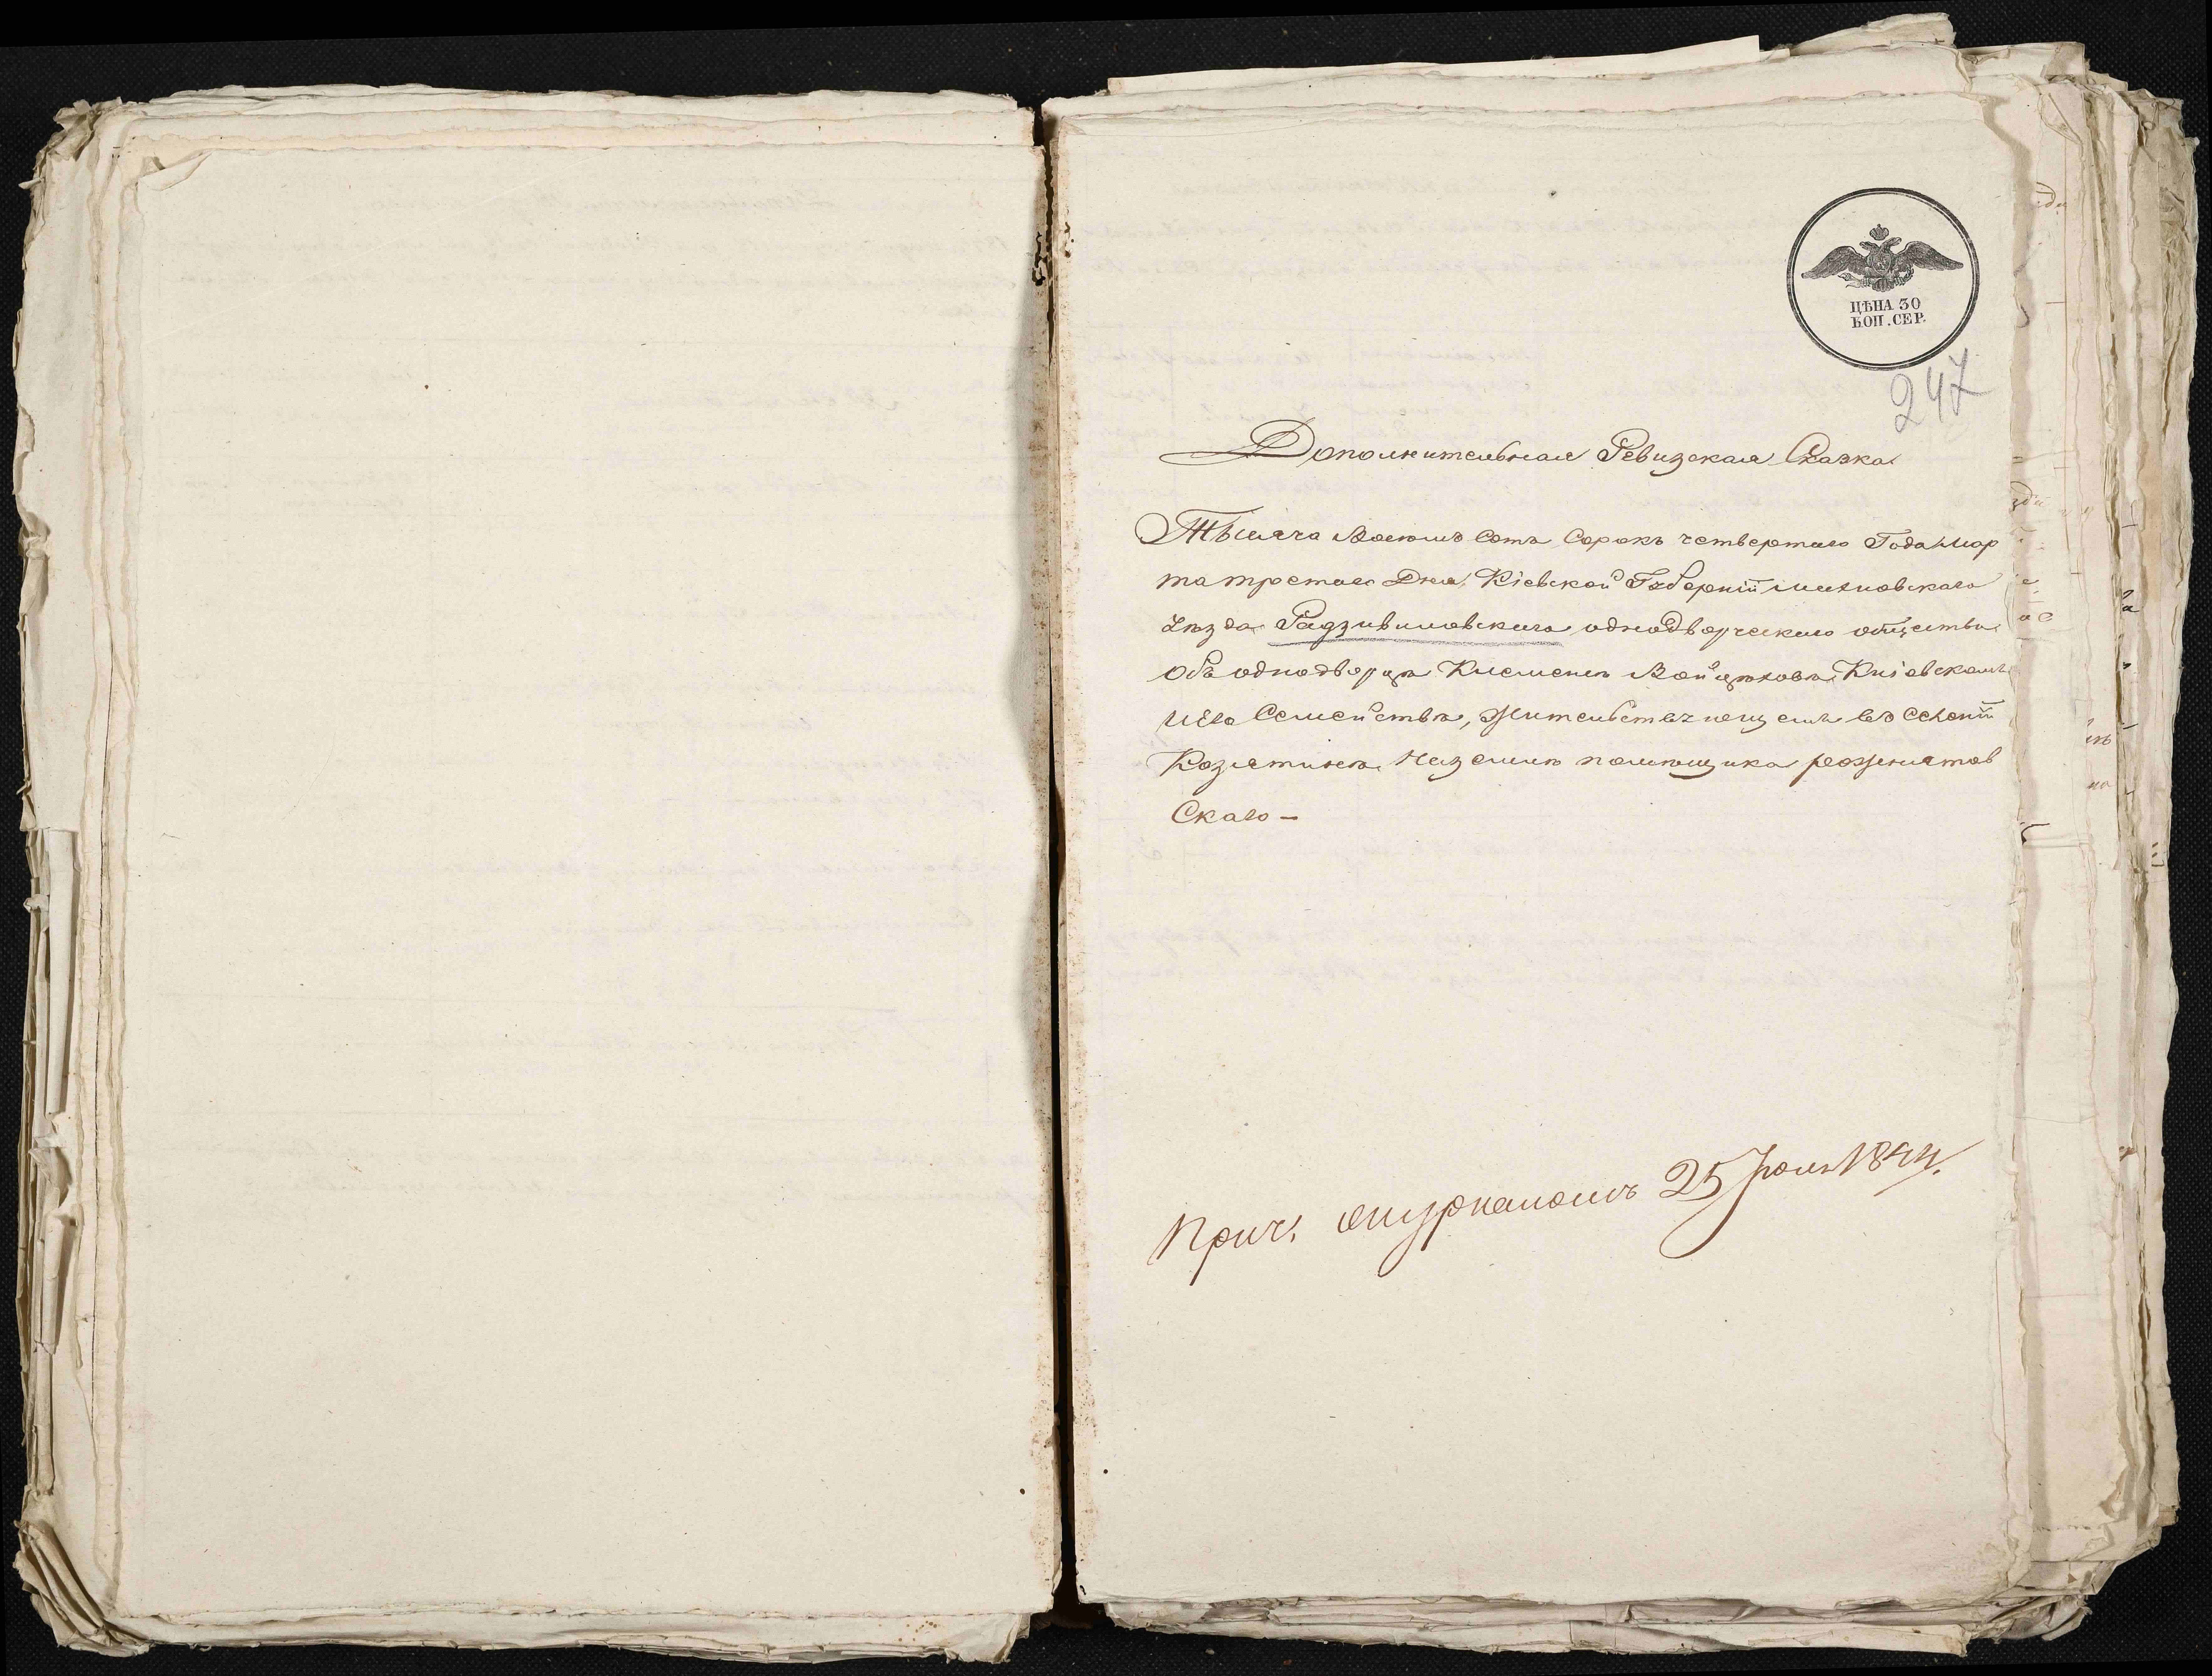 ЦѢНА 30
КОП. СЕР.
247
Дополнительная Ревизская Сказка
Тысяча Восемь Сотъ Сорокъ четвертаго Года Мар
та третьяго Дня, Кіевской Губерніи Махновскаго
Уѣзда Радзивиловскаго однодворческаго общества
Объ однодворцѣ Клемент Войцѣховѣ Кніовскомъ
и Его Семействѣ, Жительствующемъ въ Селеніи
Козятинѣ На землѣ помѣщика рожнятов
Скаго —
25 Іюля 1844.